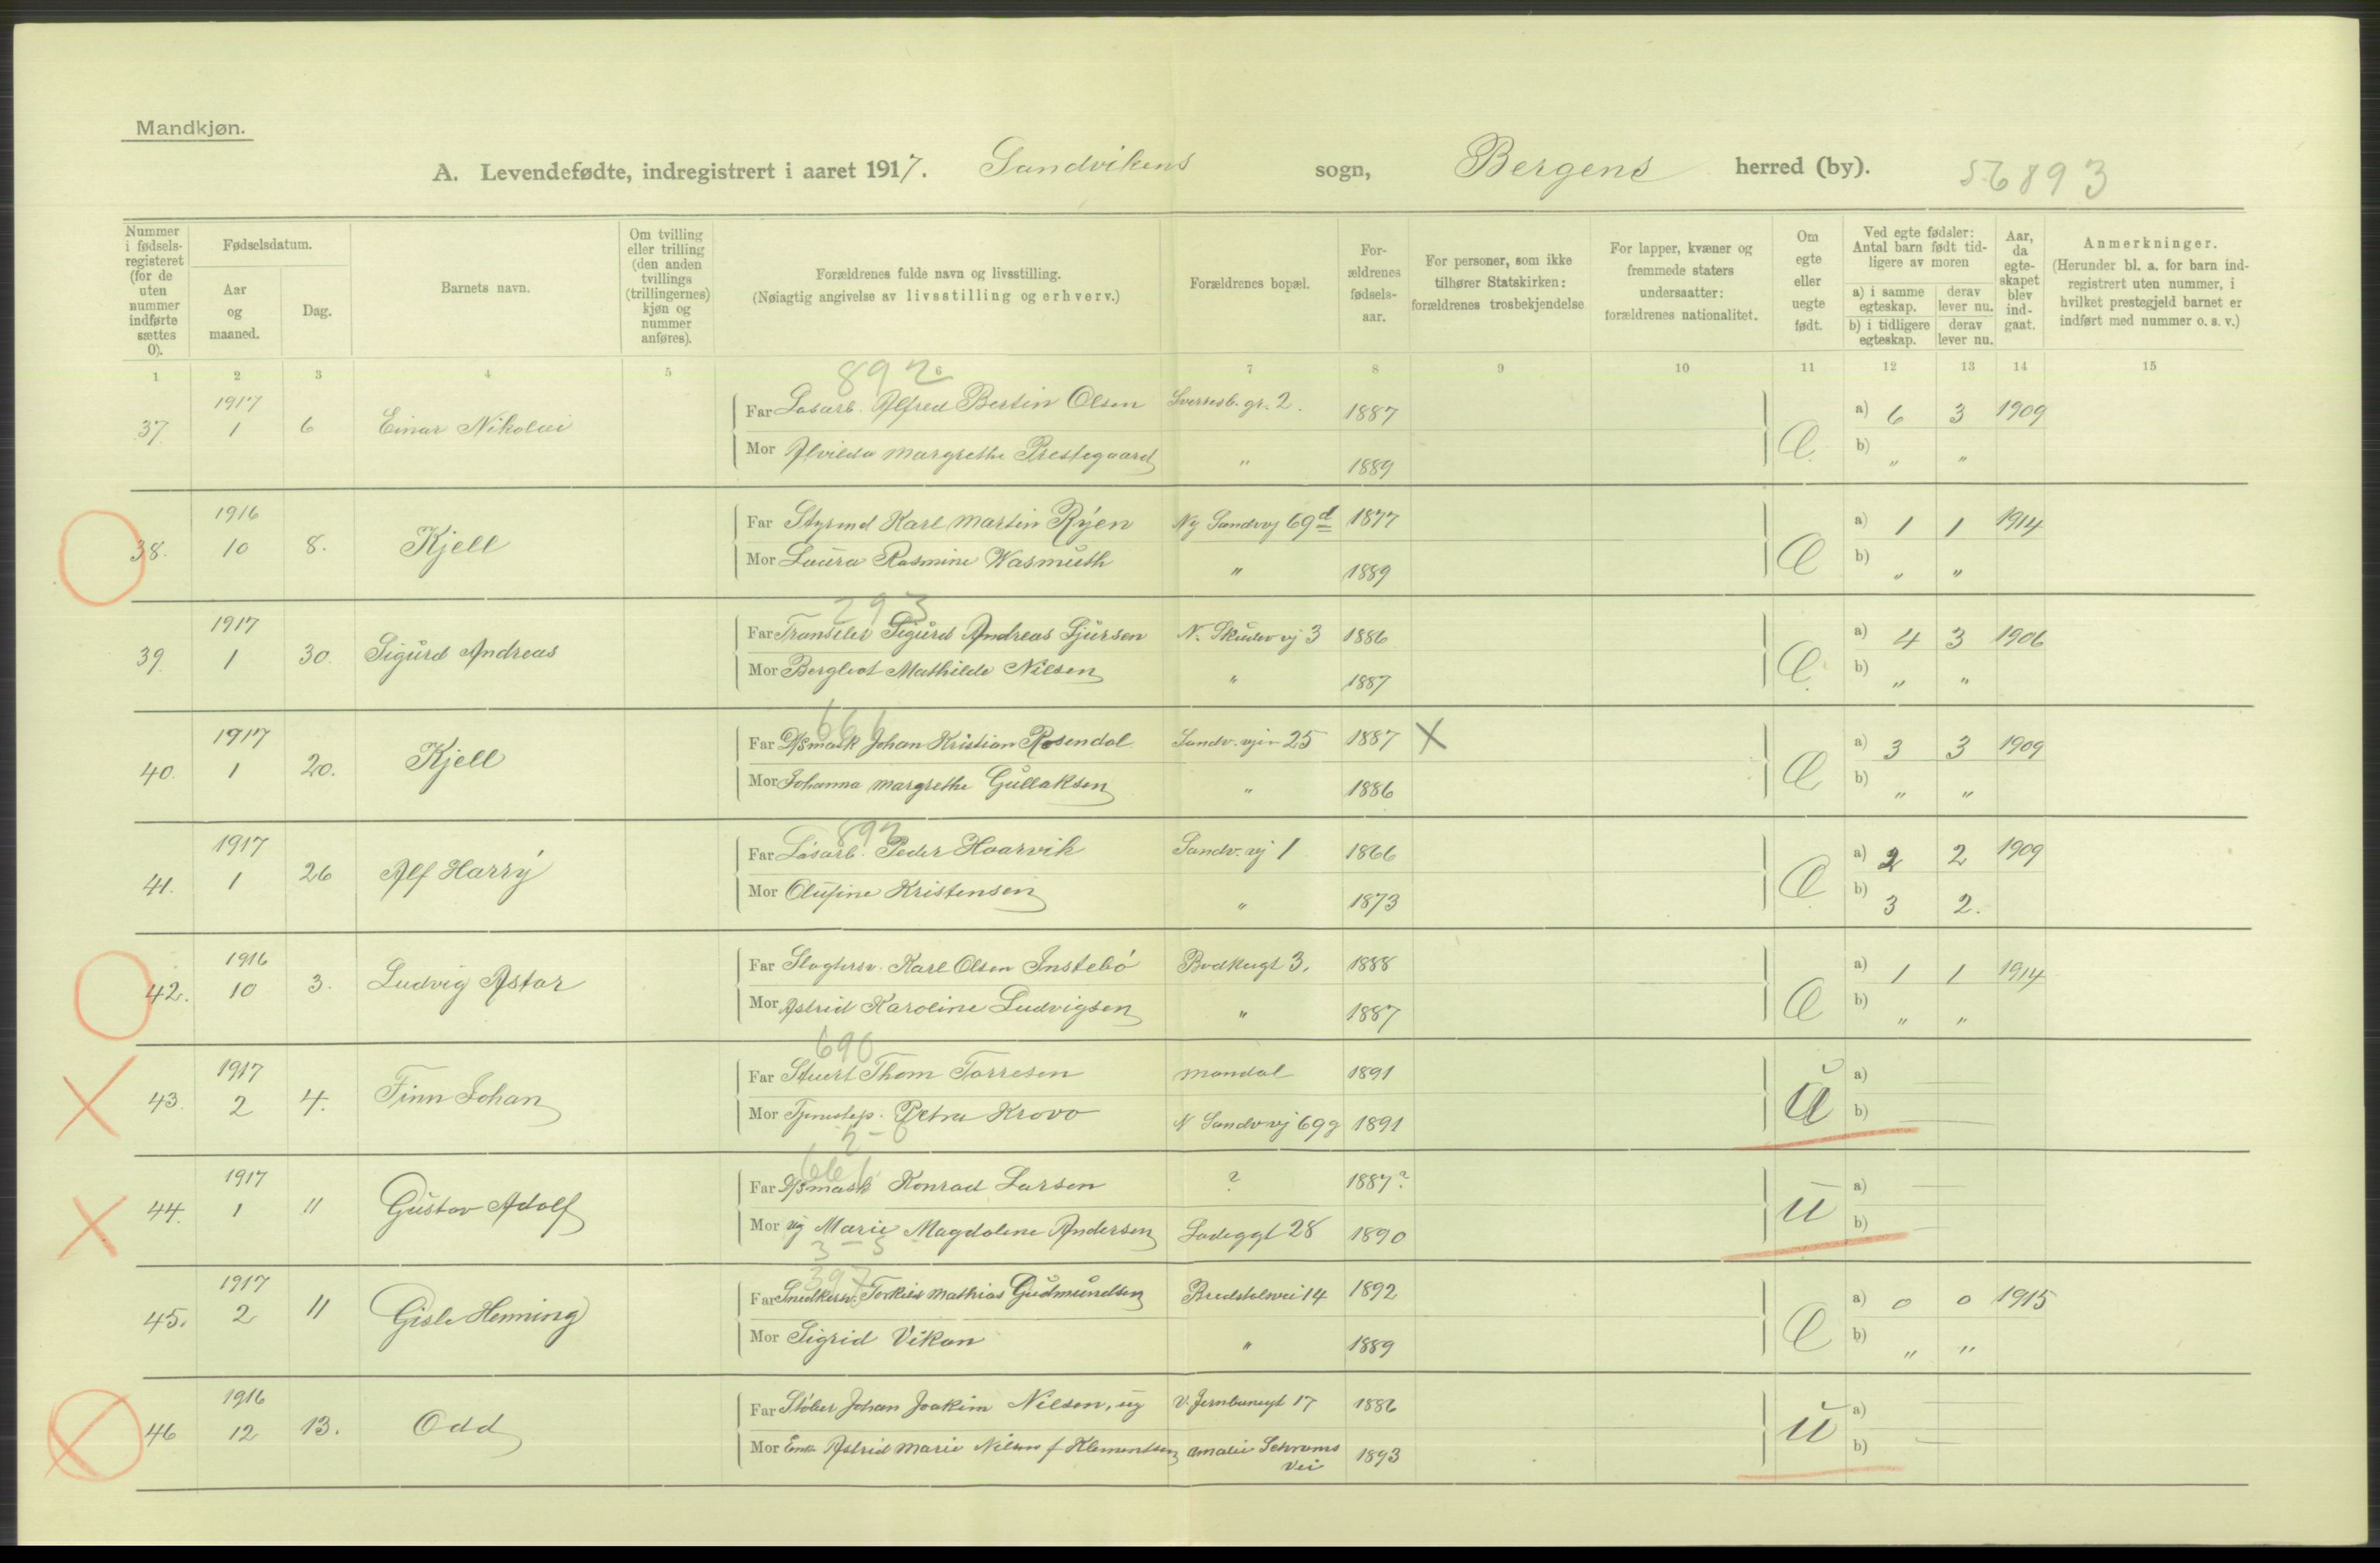 Mandkjøn.
A. Levendefødte, indregistrert i aaret 1917. Sandvikens sogn, Bergens herred (by). 56893
Nummer i fødsels-registeret (for de uten nummer indførte sættes 0).
Fødselsdatum.
Aar og maaned.
Dag.
Barnets navn.
Om tvilling eller trilling (den anden tvillings (trillingernes) kjøn og nummer anføres).
Forældrenes fulde navn og livsstilling.
(Nøiagtig angivelse av livsstilling og erhverv.)
Forældrenes bopæl.
For-ældrenes fødsels-aar.
For personer, som ikke tilhører Statskirken: forældrenes trosbekjendelse
For lapper, kvæner og fremmede staters undersaatter: forældrenes nationalitet.
Om egte eller uegte født.
Ved egte fødsler: Antal barn født tid-ligere av moren
a) i samme egteskap. derav lever nu.
b) i tidligere egteskap. derav lever nu.
Aar, da egte-skapet blev ind-gaat.
Anmerkninger.
(Herunder bl. a. for barn ind-registrert uten nummer, i hvilket prestegjeld barnet er indført med nummer o. s. v.)
1 2 3 4 5 6 7 8 9 10 11 12 13 14 15
892
37. 1917 1 6 Einar Nikolai Far Løsarb. Alfred Bertin Olsen Sverresb. gr. 2. 1887 E. a) 6 3 1909
Mor Alvilda Margrethe Prestegaard " 1889 b) " "
38. 1916 10 8. Kjell Far Styrmd Karl Martin Ryen Ny Sandvvj 69d 1877 E a) 1 1 1914
Mor Laura Rasmine Wasmuth " 1889 b) " "
293
39. 1917 1 30. Sigurd Andreas Far Transtler Sigurd Andreas Sjursen N. Skudev vj 3 1886 E. a) 4 3 1906
Mor Bergliot Mathilde Nilsen " 1887 b) " "
661
40. 1917 1 20. Kjell Far D/Smask Johan Kristian Rosendal Sandv. vein 25 1887 X E a) 3 3 1909
Mor Johanna Margrethe Gullaksen " 1886 b) " "
892
41. 1917 1 26 Alf Harry Far Løsarb. Peder Haarvik Sandv. vj 1 1866 E a) 2 2 1909
Mor Olufine Kristensen " 1873 b) 3 2.
42. 1916 10 3. Ludvig Astar Far Slagtersv. Karl Olsen Instebø Bødkergt 3. 1888 E a) 1 1 1914
Mor Astrid Karoline Ludvigsen " 1887 b) " "
690
43. 1917 2 4. Finn Johan Far Stuert Thom Torresen Mandal 1891 U a)
Mor Tjenestep. Petra Krovo N Sandvvj 69g 1891 b)
661
44. 1917 1 11 Gustav Adolf Far D/Smask Konrad Larsen ? 1887? U a)
Mor ug Marie Magdalene Andersen Ladeggt 28 1890 b)
3 - 3
397
45. 1917 2 11 Gisle Henning Far Snedkersv. Torkild Mathias Gudmundsen Bredstolvei 14 1892 E a) 0 0 1915
Mor Sigrid Vikan " 1889 b) " "
46 1916 12 13. Odd Far Støber Johan Joakim Nilsen, ug V. Jernbanegt 17 1886 U a)
Mor Enke Astrid Marie Nilsen f Klementsen Amalie Schrams Vei 1893 b)